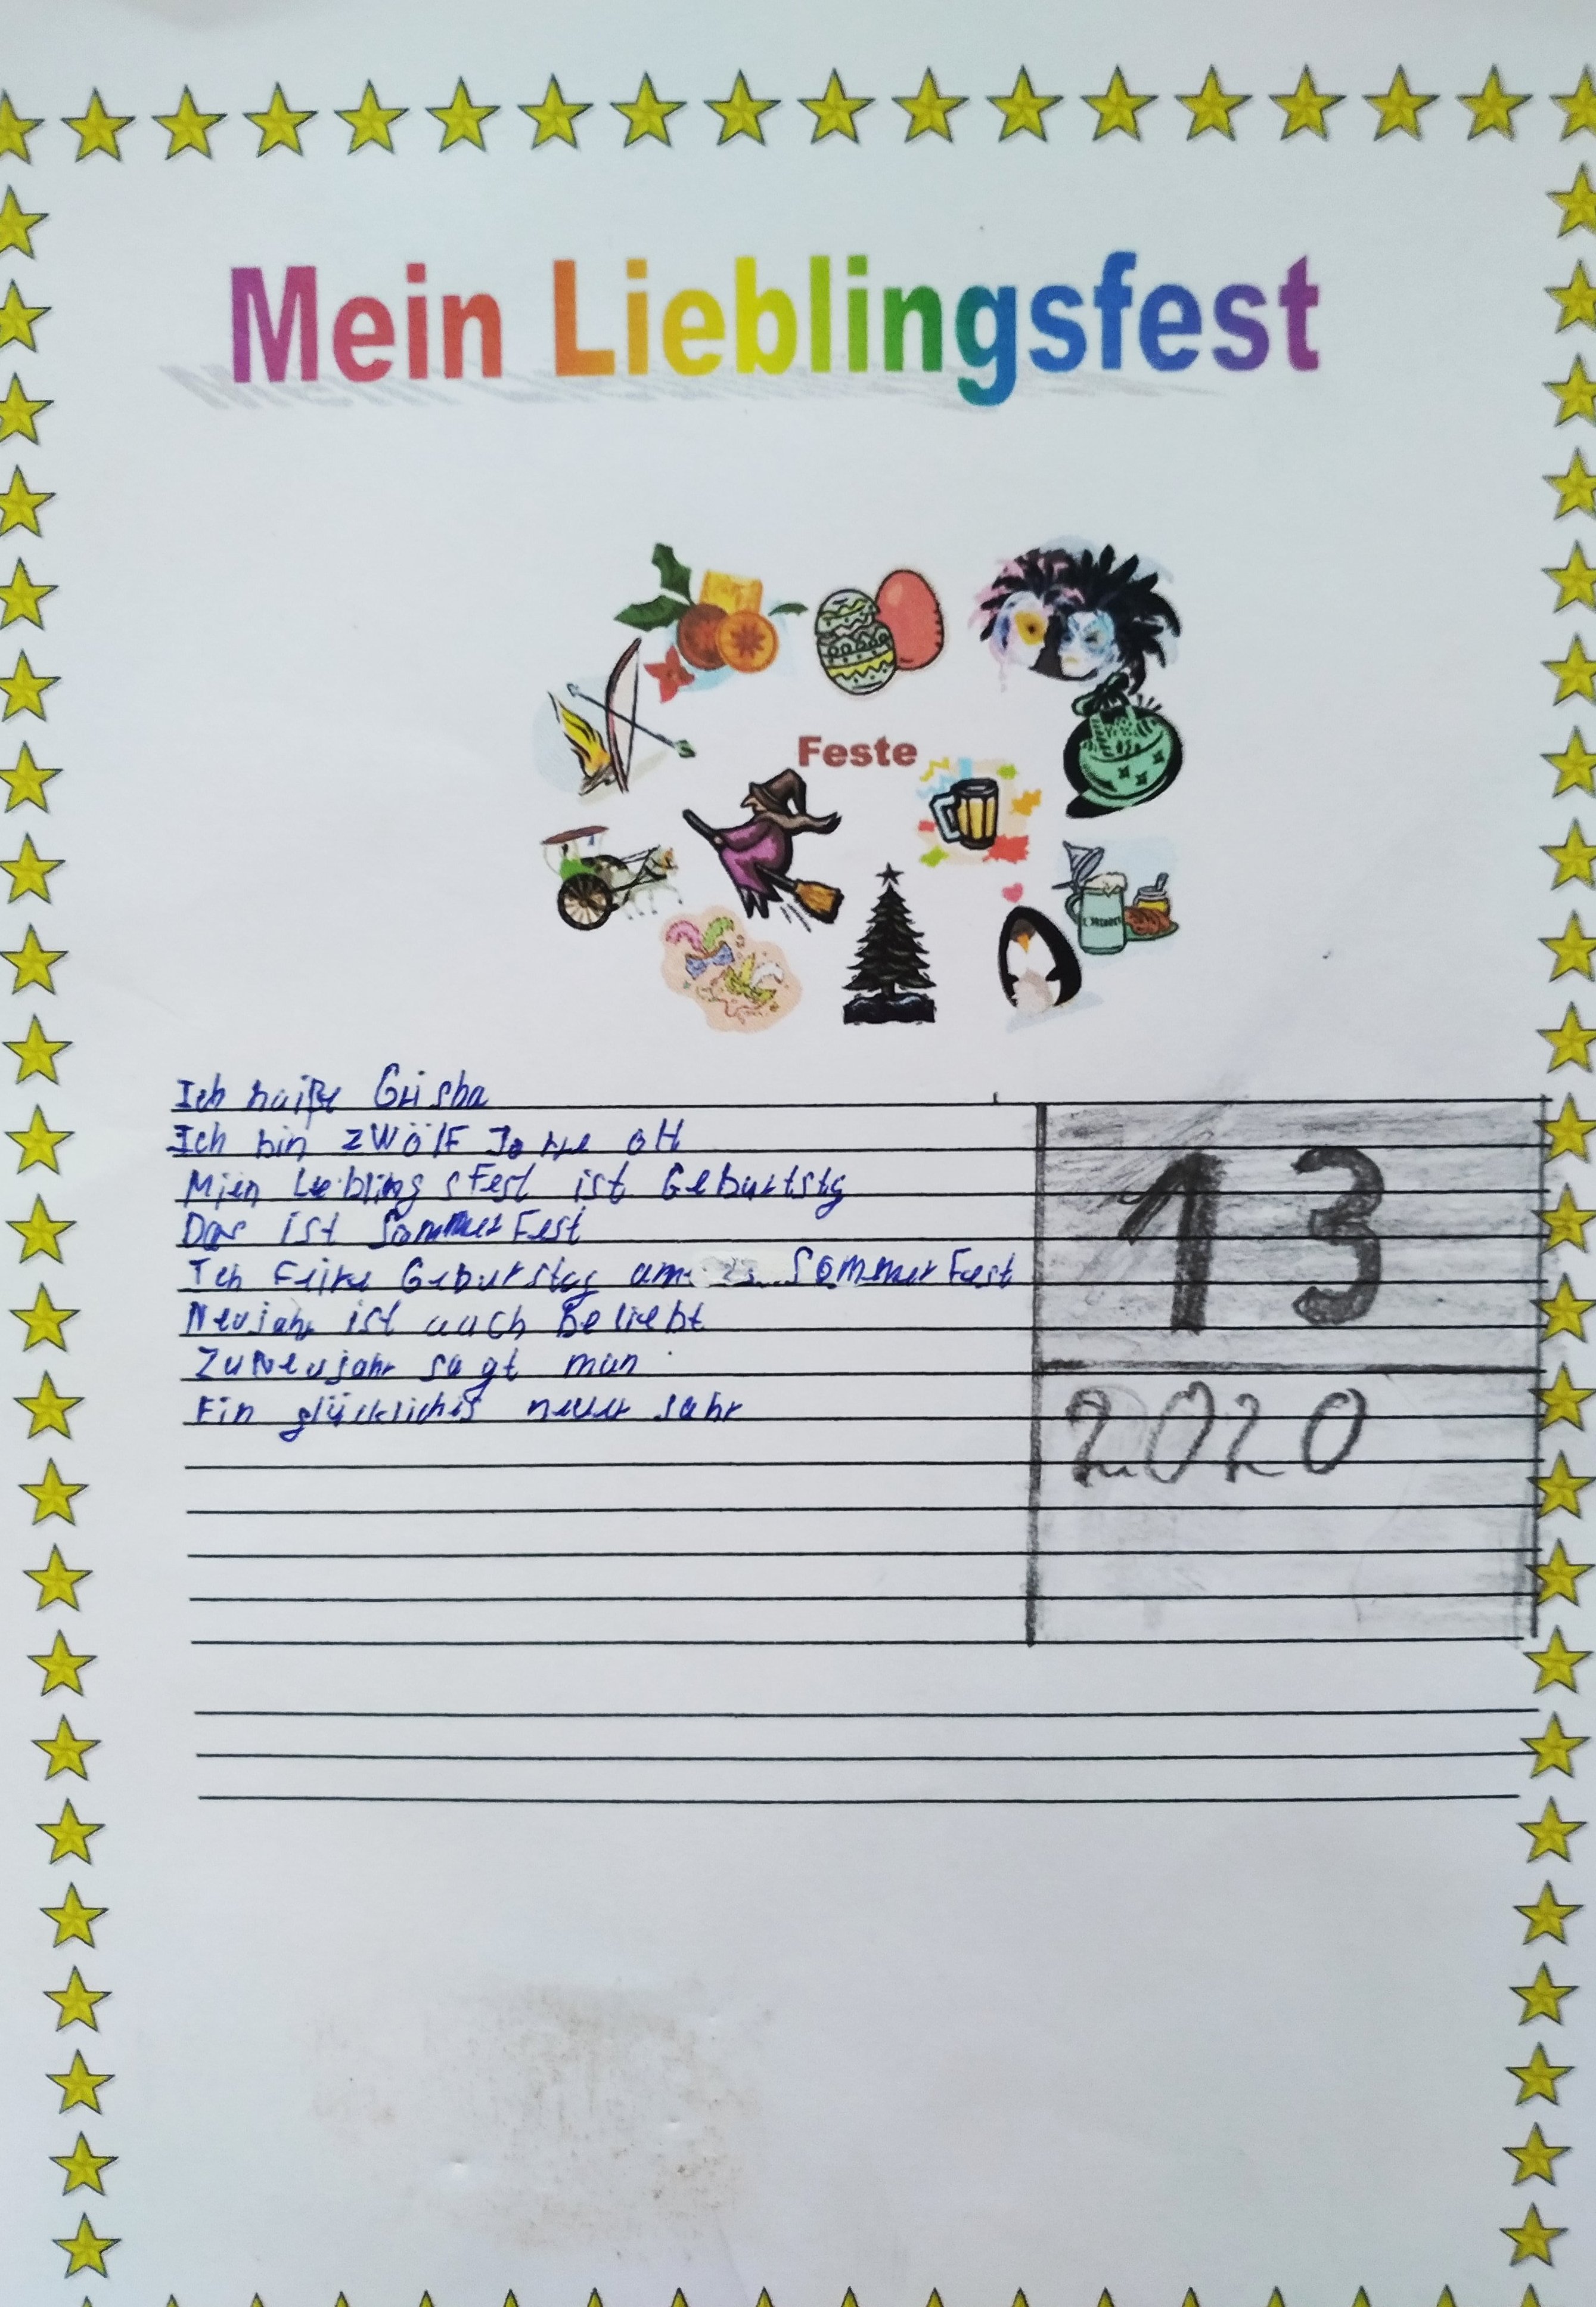 Mein Lieblingsfest
Feste
Ich haiße Grisha
Ich bin zwölf Jahre alt
Mien Lieblingsfest ist Geburtstg
Das ist SommerFest
Ich Feire Geburstag am SommerFest
Neujahr ist auch Beliebt
Zu Neujahr sagt man
Ein glückliches neuer Jahr
13
2020